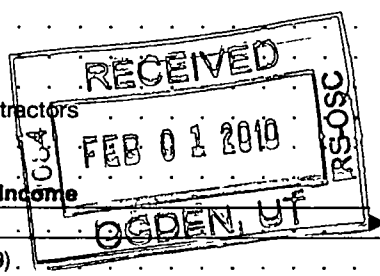 RECEIVED
tractors
FEB 01 2010
IRS-OSC
Income
OGDEN, UT
9)